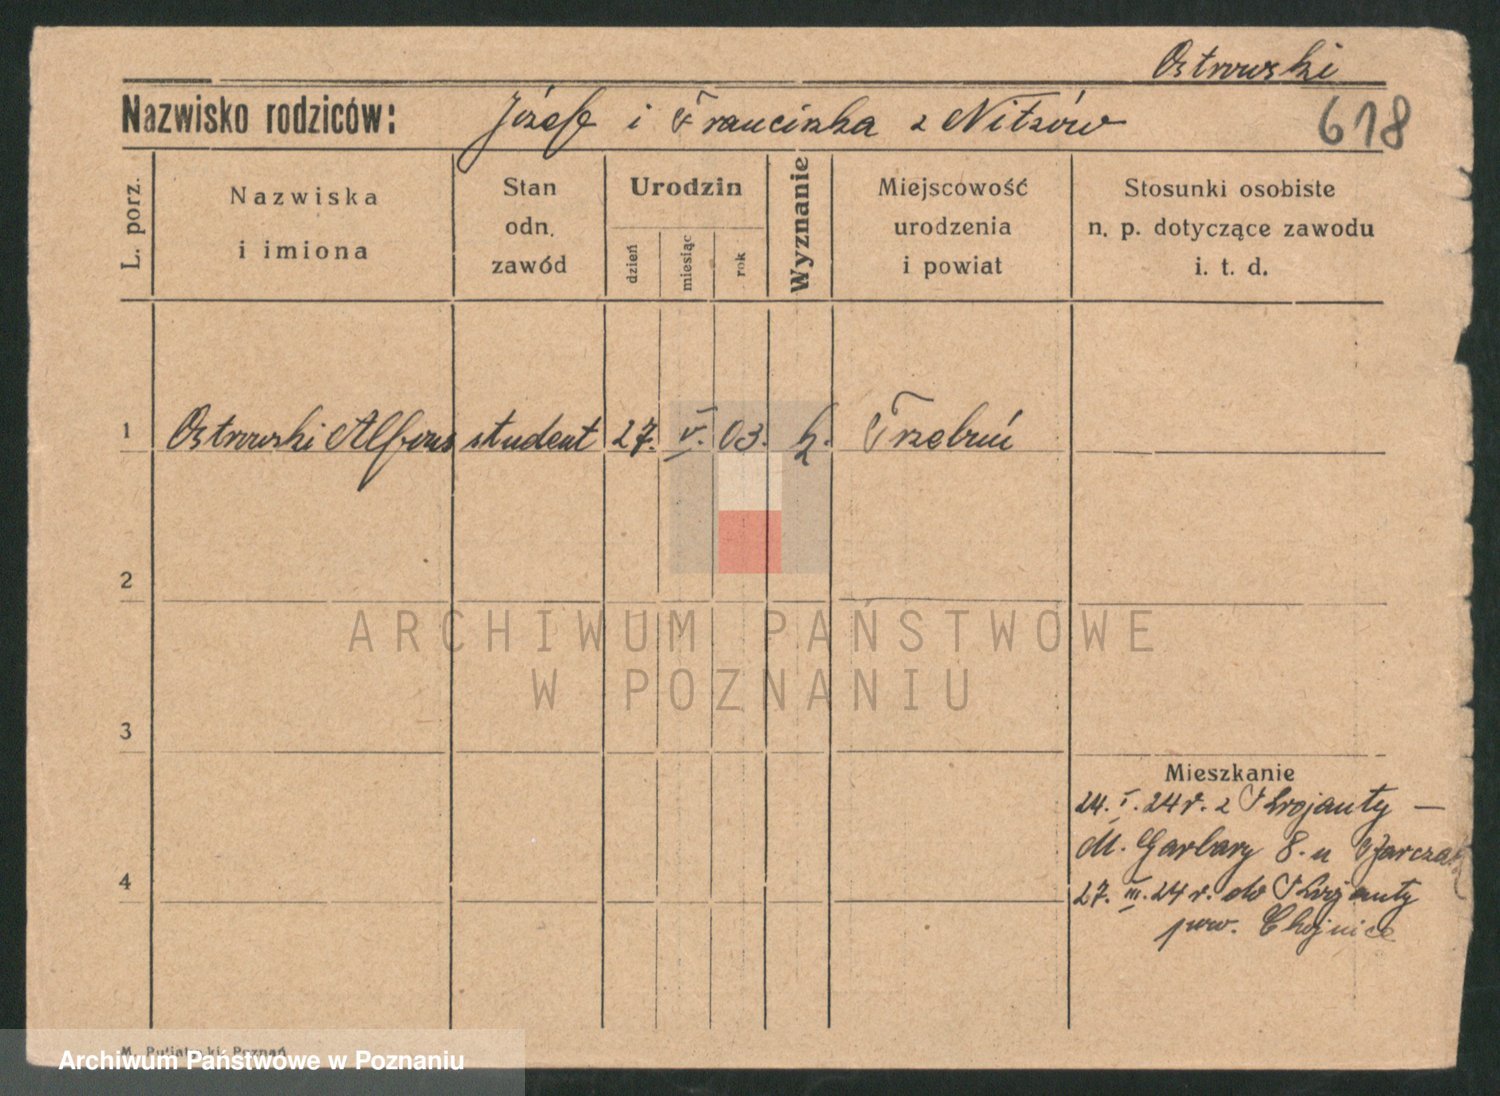 Ostrowski
Nazwisko rodziców: Józef i Franciszka z Nitzów
618
L. porz.
Nazwiska
i imiona
Stan
odn.
zawód
Urodzin
dzień
miesiąc
rok
Wyznanie
Miejscowość
urodzenia
i powiat
Stosunki osobiste
n. p. dotyczące zawodu
i. t. d.
1 Ostrowski Alfons student 27. V. 03. k. Trzebuń
2
3
4
Mieszkanie
24. I. 24 r. z Krojanty —
M. Garbary 8. u
27. III. 24 r. do Krojanty
pow. Chojnice
ARCHIWUM PAŃSTWOWE
W POZNANIU
M. Poznań
Archiwum Państwowe w Poznaniu